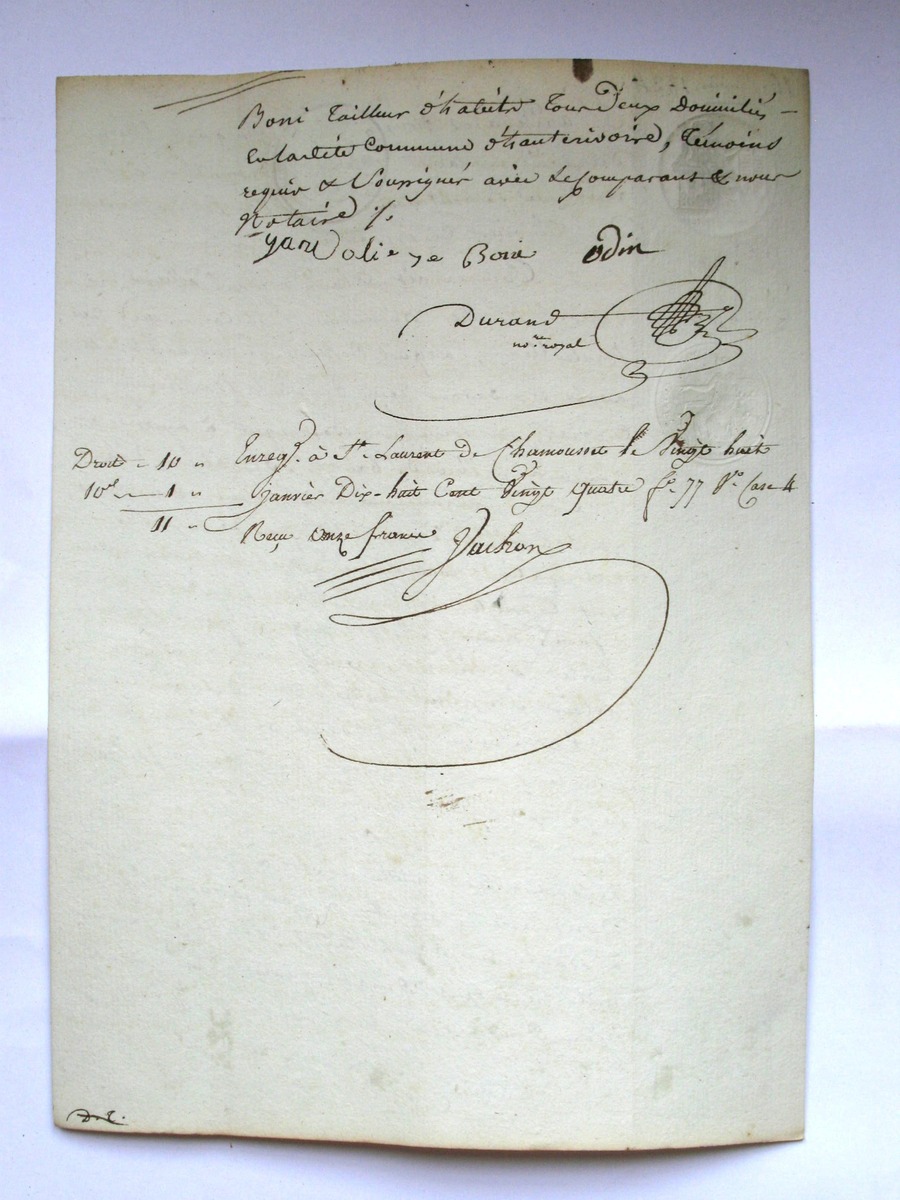 Boni Tailleur d'habits tous deux Domiciliés
En ladite Commune d'hauterivoire, Témoins
requis & Soussignés avec le Comparant & nous
Notaire %.
Boni Odin
Durand
no.re royal
Droit - 10 "
10e - 1 "
11 "
Enreg. à St. Laurent de Chamousset le Vingt huit
janvier Dix-huit Cent Vingt quatre fo. 77 Vo. Case 4
Reçu onze francs Vachon
D.t.